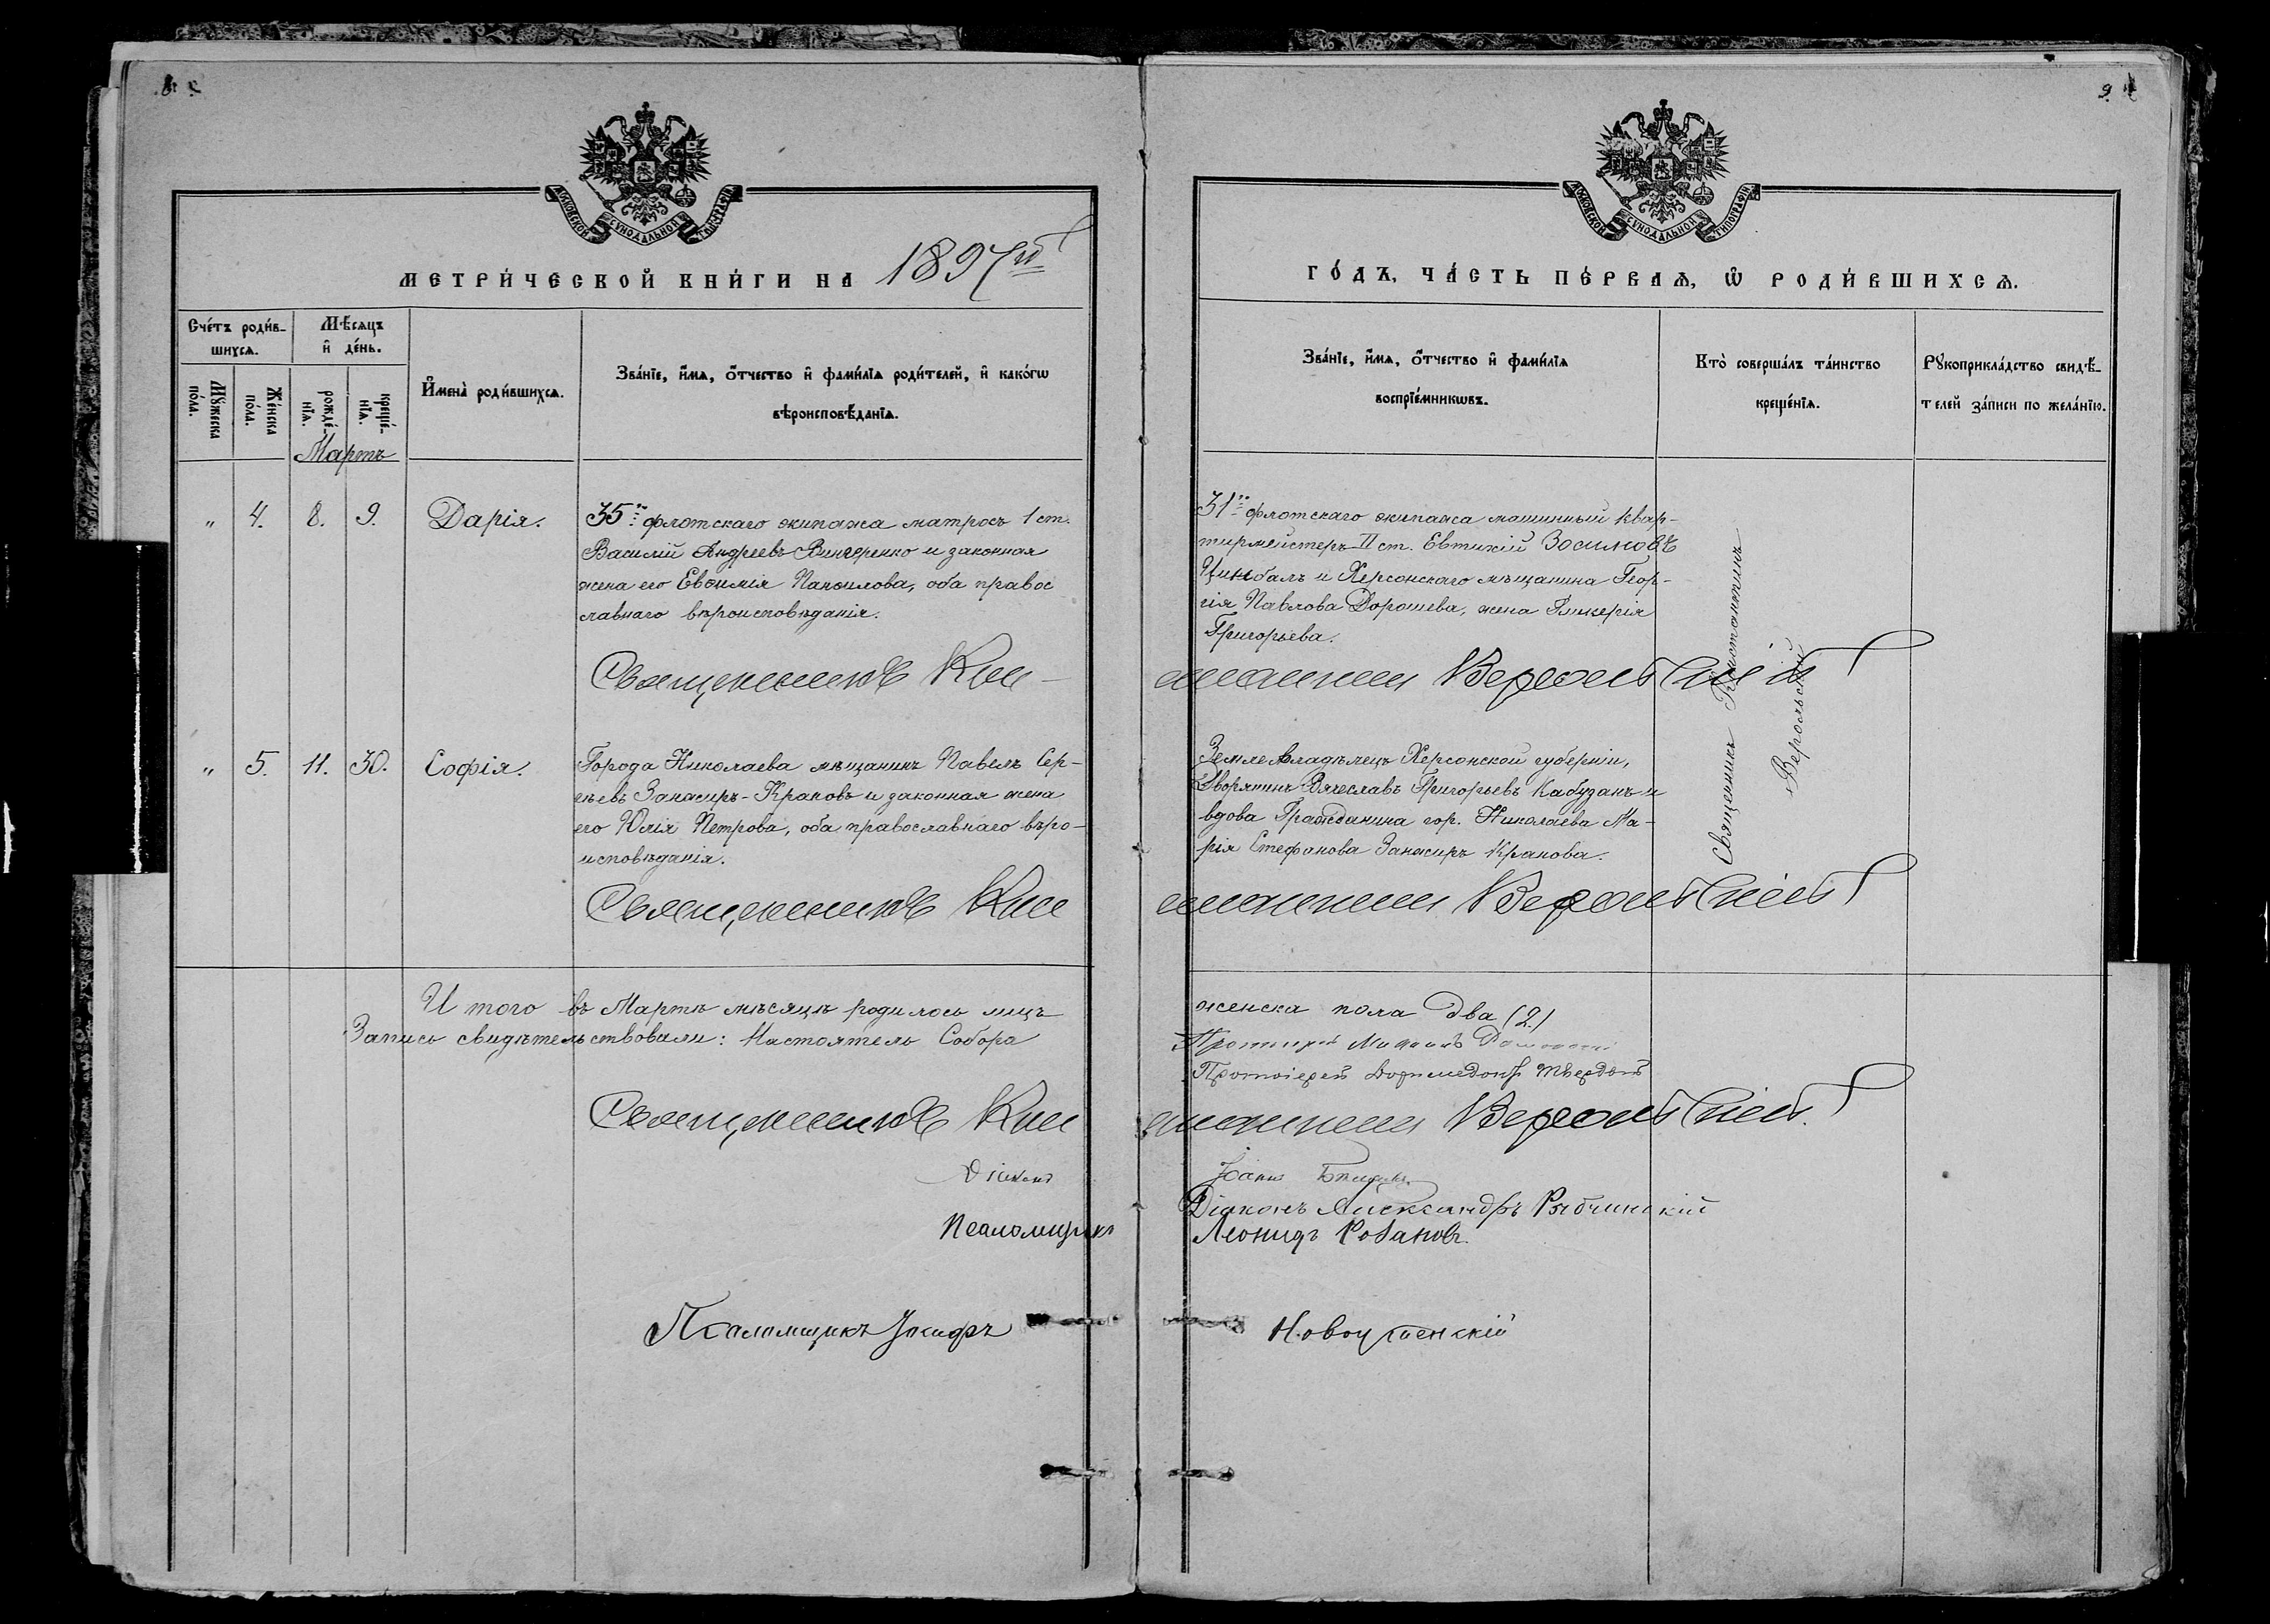 МОСКОВСКОЙ СѴНОДАЛЬНОЙ ТИПОГРАФІИ
МЕТРИ́ЧЕСКОЙ КНИ́ГИ НА 1897ой
Сче́тъ роди́в-
шихсѧ.
Мѣ́сѧцъ
и҆ де́нь.
Мꙋ́жеска
по́ла.
Же́нска
по́ла.
рожде́-
нїѧ.
креще́-
нїѧ.
И҆мена̀ роди́вшихсѧ.
Зва́нїе, и҆́мѧ, ѻ҆́тчество и҆ фами́лїѧ роди́телей, и҆ како́гѡ
вѣроисповѣ́данїѧ.
Мартъ
" 4. 8. 9. Дарія.
35го флотскаго экипажа матросъ 1 ст.
Василій Андреевъ Винчеренко и законная
жена его Евѳимія Панфилова, оба правос
лавнаго вѣроисповѣданія.
Священникъ Кон-
" 5. 11. 30. Софія.
Города Николаева мѣщанинъ Павелъ Сер-
гѣевъ Занасиръ-Краковъ и законная жена
его Юлія Петрова, оба православнаго вѣро-
исповѣданія.
Священникъ Кон
И того въ Мартѣ мѣсяцѣ родилось лицъ
Запись свидѣтельствовали: Настоятель Собора
Священникъ Кон
Діаконъ
Псаломщикъ
Псаломщикъ
9.
МОСКОВСКОЙ СѴНОДАЛЬНОЙ ТИПОГРАФІИ
ГО́ДЪ, ЧА́СТЬ ПЕ́РВАѦ, Ѡ҆ РОДИ́ВШИХСѦ.
Зва́нїе, и҆́мѧ, ѻ҆́тчество и҆ фами́лїѧ
воспрїе́мникѡвъ.
Кто̀ соверша́лъ та́инство
креще́нїѧ.
Рꙋкоприкла́дство свидѣ́-
телей за́писи по жела́нїю.
31го флотскаго экипажа машинный квар-
тирмейстеръ II ст. Евтихій Зосимовъ
Цимбалъ и Херсонскаго мѣщанина Геор-
гія Павлова Дорошева, жена Гликерія
Григорьева.
стантинъ Верольскій
Землевладѣлецъ Херсонской губерніи,
Дворянинъ Вячеславъ Григорьевъ Кабузанъ и
вдова Гражданина гор. Николаева Ма-
рія Стефанова Занасиръ Кракова.
стантинъ Верольскій
Священникъ Константинъ
Верольскій
женска пола два (2)
Протоіерей
Протоіерей Доримедонтъ Твердый
стантинъ Верольскій.
Діаконъ Александръ Рыбчинскій
Леонидъ Розановъ.